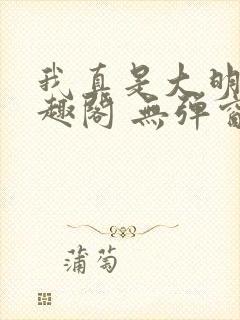 我真是大明
趣閣 無彈窗
蒲萄